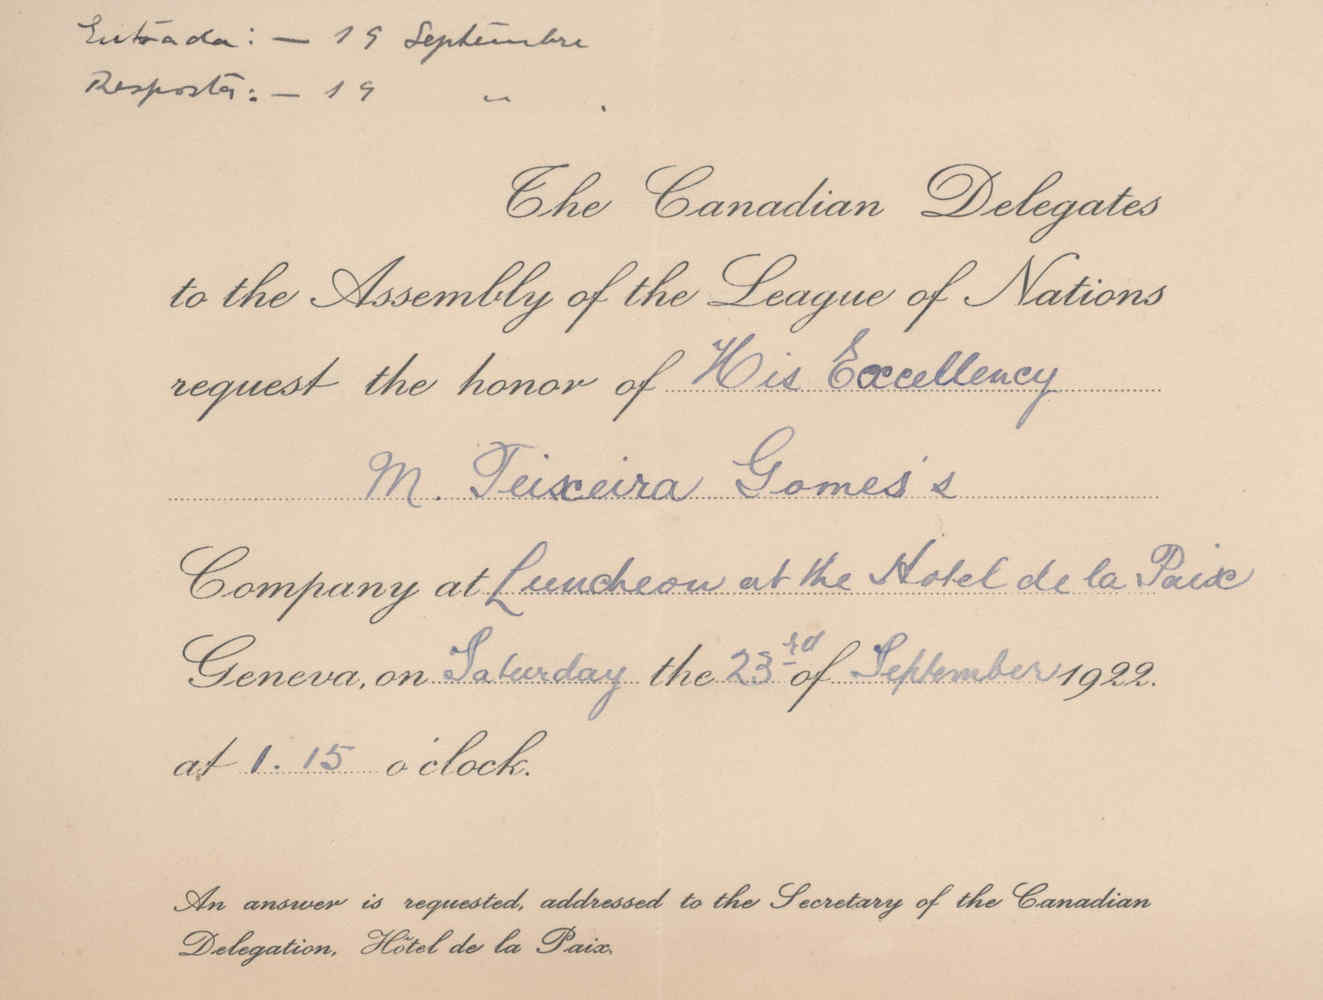 Entrada: — 19 Septembre
Resposta: — 19 " .
The Canadian Delegates
to the Assembly of the League of Nations
request the honor of His Excellency
M. Teixeira Gomes's
Company at Luncheon at the Hotel de la Paix
Geneva, on Saturday the 23rd of September 1922.
at 1.15 o'clock.
An answer is requested, addressed to the Secretary of the Canadian
Delegation, Hôtel de la Paix.